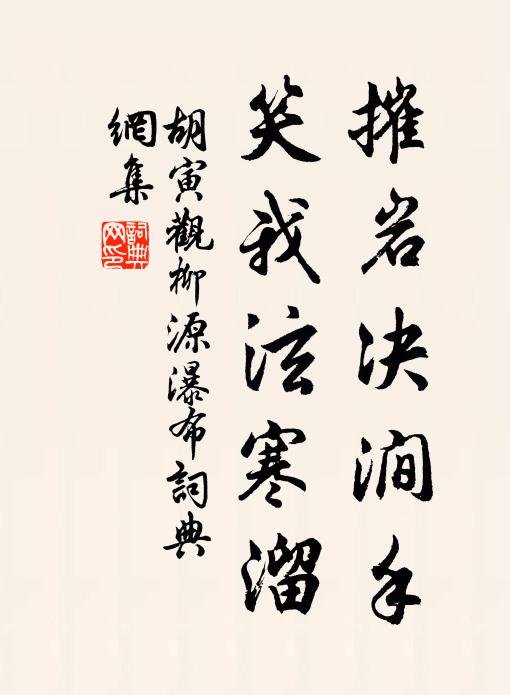 摧岩决澗手
笑我泫寒溜
胡寅觀柳源瀑布詞典
網集
詞典網印